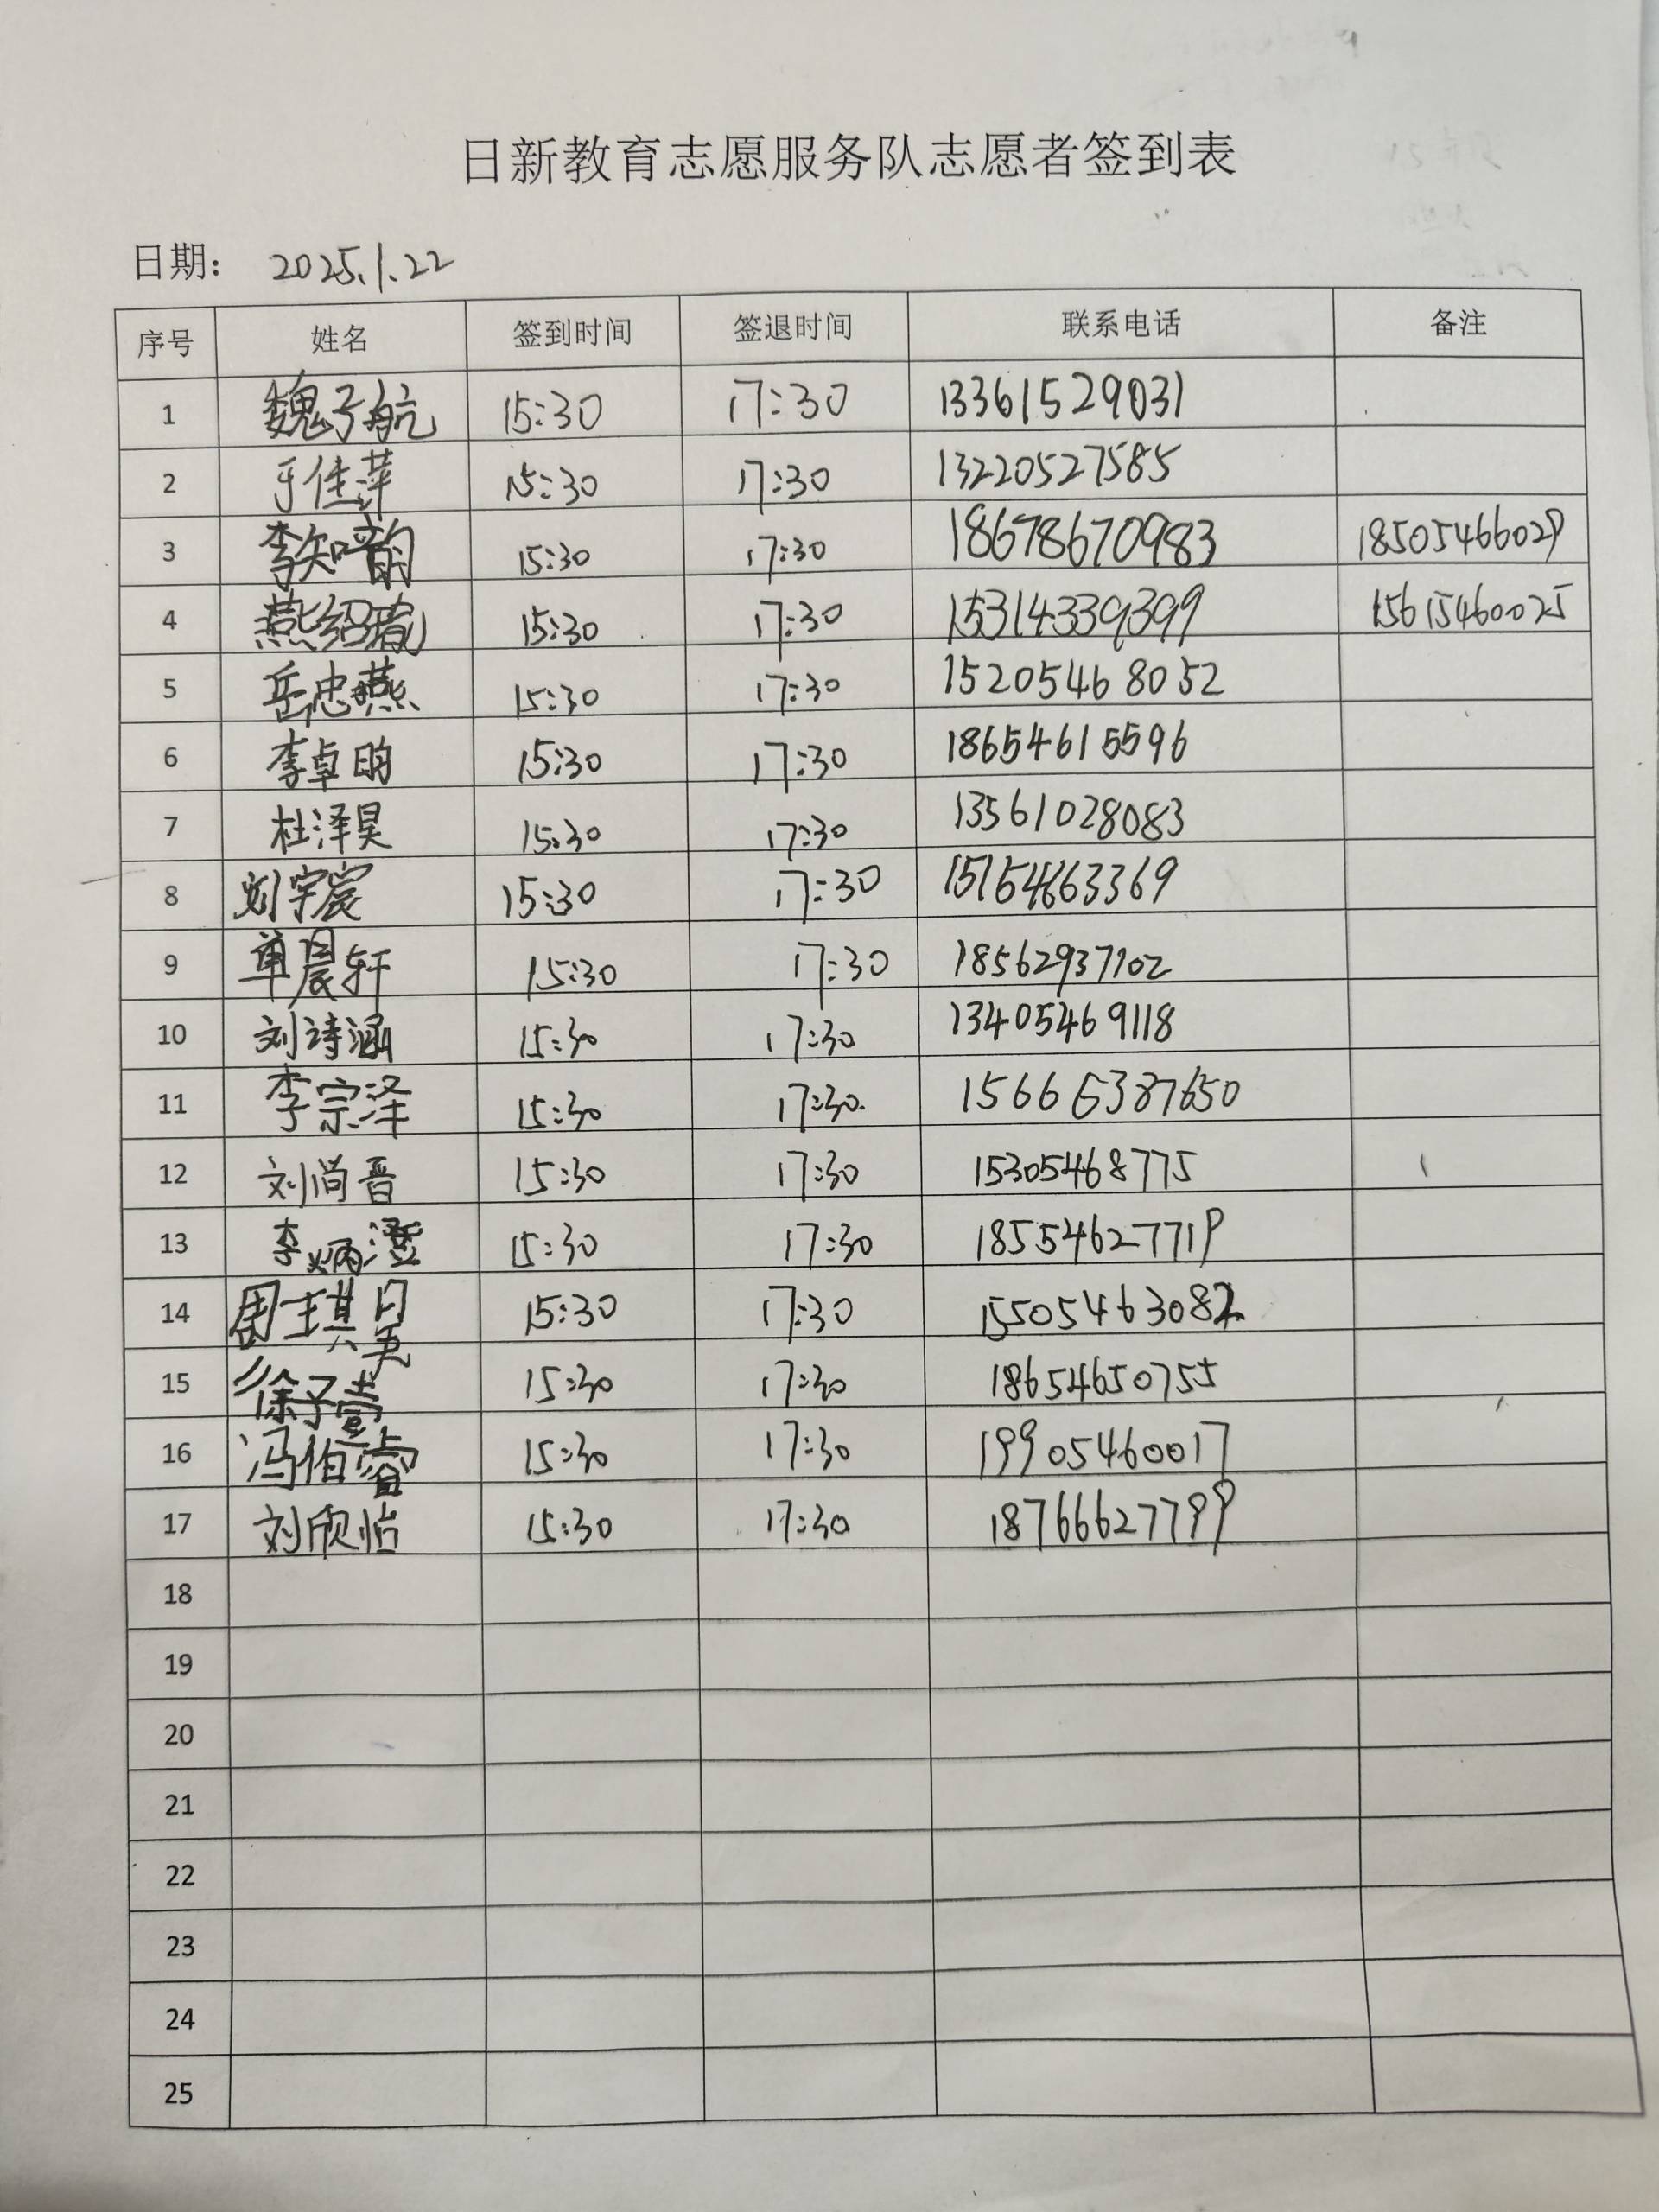 日新教育志愿服务队志愿者签到表
日期： 2025.1.22
序号 姓名 签到时间 签退时间 联系电话 备注
1 魏子航 15:30 17:30 13361529031
2 于佳萍 15:30 17:30 13220527585
3 李知韵 15:30 17:30 18678670983 18505466029
4 燕绍 15:30 17:30 15314339399 15615460025
5 岳忠燕 15:30 17:30 15205468052
6 李卓昀 15:30 17:30 18654615596
7 杜泽昊 15:30 17:30 13561028083
8 刘宇宸 15:30 17:30 15154663369
9 单晨轩 15:30 17:30 18562937102
10 刘诗涵 15:30 17:30 13405469118
11 李宗泽 15:30 17:30 15666387650
12 刘尚晋 15:30 17:30 15305468775
13 李炳澄 15:30 17:30 18554627719
14 周琪 15:30 17:30 15505463082
15 徐子壹 15:30 17:30 18654650755
16 冯伯睿 15:30 17:30 19905460017
17 刘欣怡 15:30 17:30 18766627799
18
19
20
21
22
23
24
25